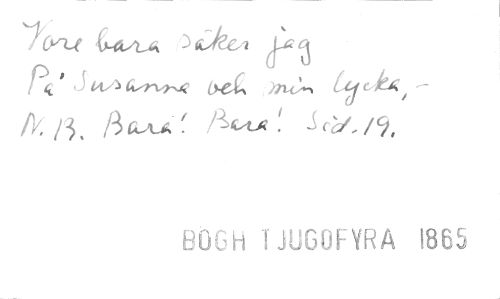 Vore bara säker jag
På Susanna och min lycka,-
N.B. Bara! Bara! Sid. 19.
BOGH TJUGOFYRA 1865